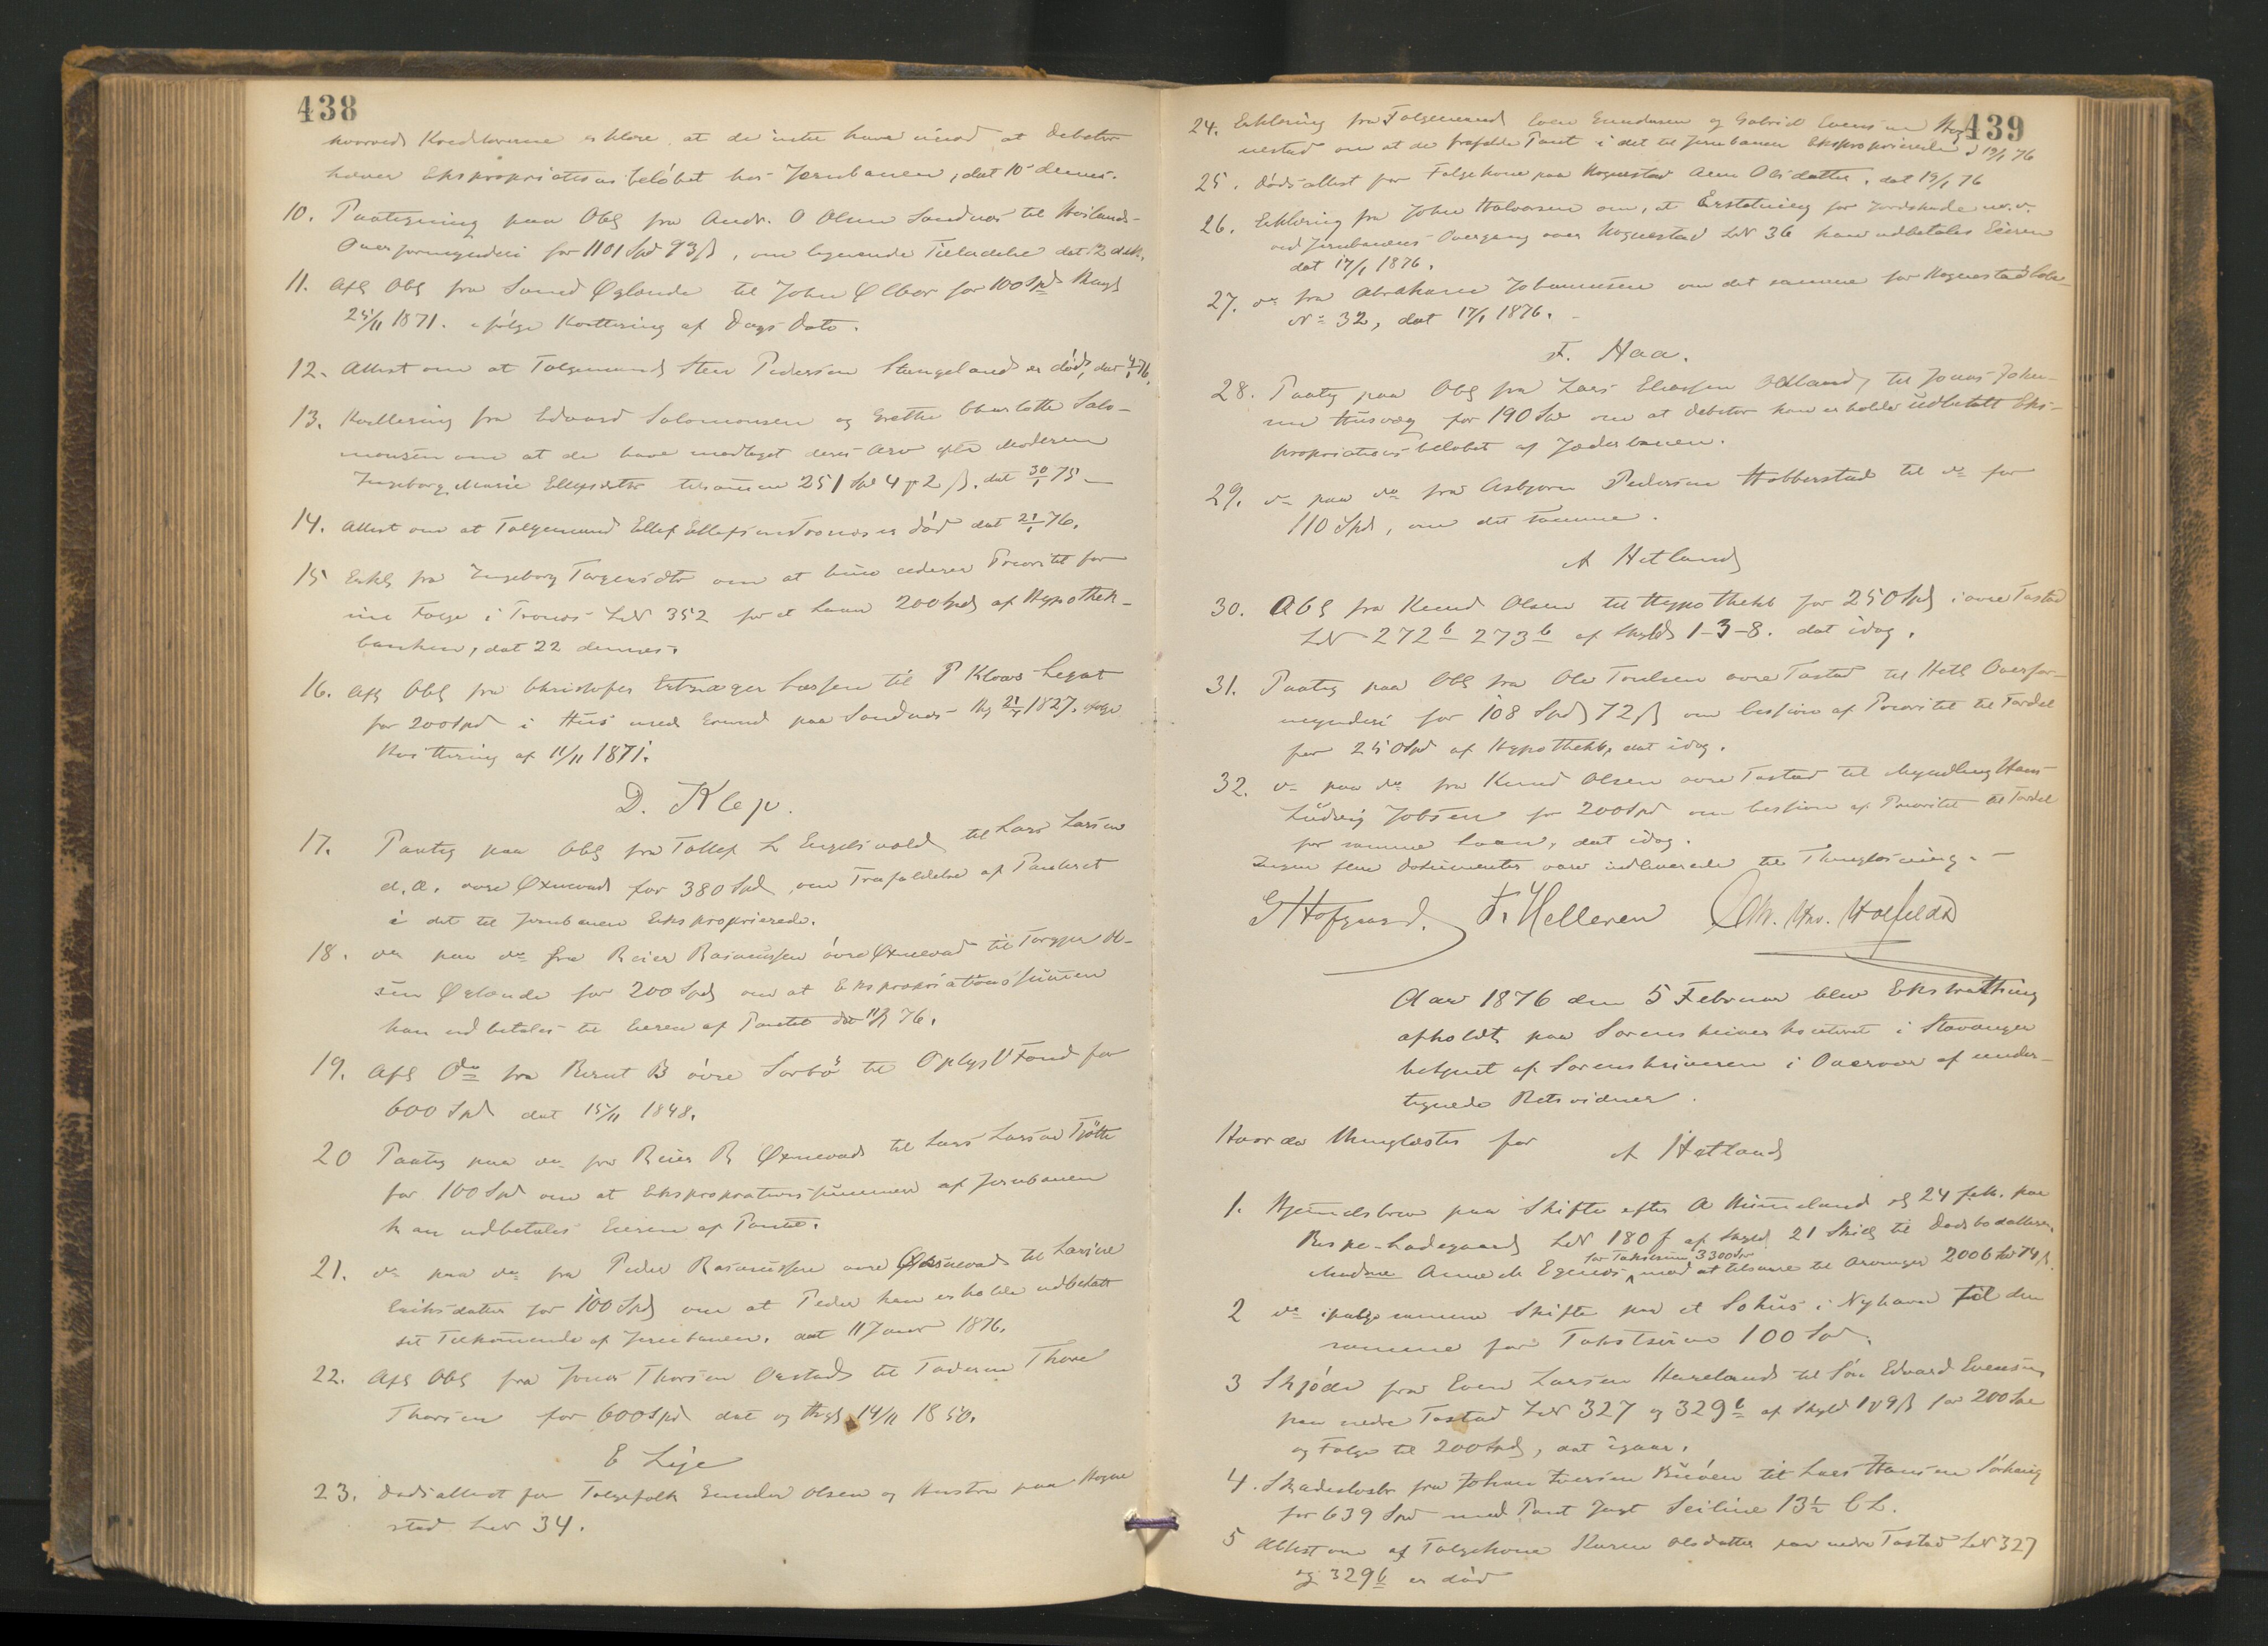 438
hvorved Kreditorerne erklære at de intet have imod at Debitor
hæver Ekspropriationsbeløbet hos Jernbanen, dat 10 dennes.
10. Paategning paa Obl fra Andr. O Olsen Sandnæs til Høilands-
Overformynderi for 1101 Spd 93 ß, om lignende Tilladelse dat 12 ds.
11. Afl Obl fra Svend Øglænde til John Ølbør for 100 Spd thingl
25/11 1871. ifølge Kvittering af Dags Dato.
12. Attest om at Folgemand Sten Pedersen Stangeland er død, dat 4/1 76.
13. Kvittering fra Edvard Salomonsen og Grethe Charlotte Salo-
monsen om at de have modtaget deres Arv efter Moderen
Ingeborg Marie Ellefsdtr tilsammen 251 Spd 4 2 ß, dat 30/1 75
14. Attest om at Folgemand Ellef Ellefsen Tronæs er død dat 21/1 76.
15 Erkl fra Ingeborg Torgersdtr om at hun cederer Prioritet for
sin Folge i Tronæs LN 352 for et Laan 200 Spd af Hypothek-
banken, dat 22 dennes.
16. Afl Obl fra Christofer Larsen til P Kloves Legat
for 200 Spd i Hus med Grund paa Sandnæs 1827. ifølge
Kvittering af 11/11 1871.
D. Klep.
17. Paateg paa Obl fra Tollef L Engelsvold til Lars Larsen
d.Æ. øvre Øxnevad for 380 Spd om Frafaldelse af Panteret
i det til Jernbanen Eksproprierede.
18. do paa do fra Reier Rasmussen øvre Øxnevad til Torger Ol-
sen Øglænde for 200 Spd om at Ekspropriationssummen
kan udbetales til Eieren af Pantet dat 11/1 76.
19. Afl Do fra Bernt B øvre Sørbø til Oplys V Fond for
600 Spd dat 15/11 1848.
20 Paateg paa do fra Reier R Øxnevad til Lars Larsen Tjøtte
for 100 Spd om at Ekspropriationssummen af Jernbanen
kan udbetales Eieren af Pantet.
21. do paa do fra Peder Rasmussen øvre Øxnevad til Larine
Eriksdatter for 100 Spd om at Peder kan erholde udbetalt
sit Tilkommende af Jernbanen. dat 11 Januar 1876.
22. Afl Obl fra Jonas Thorsen Orstad til Faderen Thore
Thorsen for 600 Spd dat og thgl 14/11 1850.
E Lye
23. Dødsattest for Folgefolk Gunder Olsen og Hustru paa Hogne
stad LN 34.
439
24. Erklæring fra Folgemænd Even Gundersen og Gabriel Evensen Hog
nestad om at de frafalde Pant i det til Jernbanen Eksproprierede d 19/1 76
25. Dødsattest for Folgekone paa Hognestad Anna Olsdatter, dat 19/1 76
26. Erklæring fra John Halvorsen om, at Erstatning for Jordskade m.v.
ved Jernbanens Overgang over Hognestad LN 36 kan udbetales Eieren
dat 17/1 1876.
27. do fra Abraham Johannesen om det samme for Hognestad Løbe
No 32, dat 17/1 1876.
F. Haa.
28. Paateg paa Obl fra Lars Eliassen til Jonas John-
sen Husvæg for 190 Spd om at Debitor kan erholde udbetalt Eks-
propriationsbeløbet af Jæderbanen.
29. do paa do fra Asbjørn Pedersen Hobberstad til do for
110 Spd, om det samme.
A Hetland
30. Obl fra Knud Olsen til Hypothekb for 250 Spd i øvre Tastad
LN 272 b 273 b af Skyld 1-3-8. dat idag.
31. Paateg paa Obl fra Ole Toresen øvre Tastad til Hetl Overfor-
mynderi for 108 Spd 72 ß om Cession af Prioritet til Fordel
for 250 Spd af Hypothekb, dat idag.
32. do paa do fra Knud Olsen øvre Tastad til Myndling Hans
Ludvig Jobsen for 200 Spd om Cession af Prioritet til Fordel
for samme Laan, dat idag.
Ingen flere Dokumenter vare indleverede til Thinglæsning.
G Hofgaard. F. Helleren Chr. Hr.
Aar 1876 den 5 Februar blev Ekstrathing
afholdt paa Sorenskriverkontoret i Stavanger
betjent af Sorenskriveren i Overvær af under-
tegnede Retsvidner.
Hvorda thinglæstes for
A Hetland
1. Hjemmelsbrev paa Skifte efter A Kimmeland af 24 f.M. paa
Ladegaard LN 180 f af Skyld 21 Skill til Dødsbodatteren
Madme Anne M Egenæs for Takstsum 3300 Spd mod at tilsvare til Arvinger 2006 Spd 74 ß.
2 do ifølge samme Skifte paa et Søhus i Nyhavn til den
samme for Takstsum 100 Spd.
3 Skjøde fra Even Larsen Haraland til Søn Edvard Evensen
paa nedre Tastad LN 327 og 329 b af Skyld 1 9 ß for 200 Spd
og Folge til 200 Spd, dat igaar.
4. Skadesløsbr fra Johan Iversen Buøen til Lars Hansen Sørhaug
for 639 Spd med Pant Jagt Seiline 13½ CL.
5 Attest om at Folgekone Karen Olsdatter paa nedre Tastad LN 327
og 329 b er død